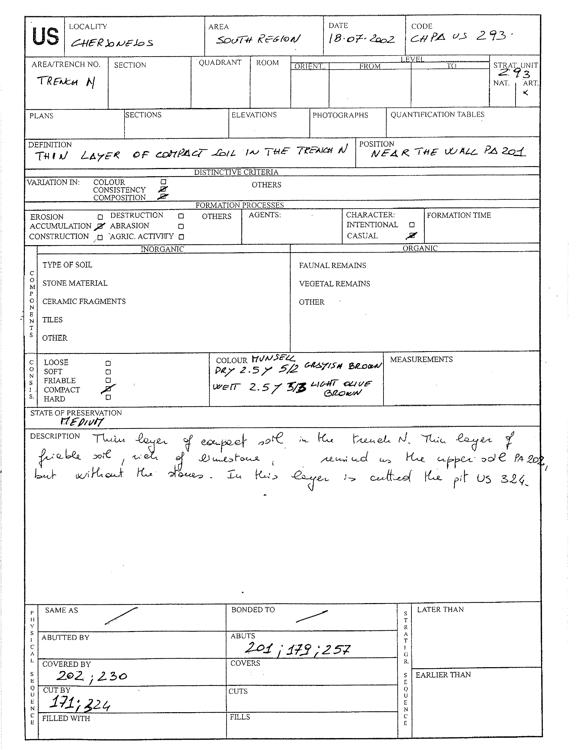 US
LOCALITY
CHERSONESOS
AREA
SOUTH REGION
DATE
18-07-2002
CODE
CHPA US 293
AREA/TRENCH NO.
TRENCH N
SECTION
QUADRANT
ROOM
LEVEL
ORIENT. FROM TO
STRAT. UNIT
293
NAT. ART.
x
PLANS
SECTIONS
ELEVATIONS
PHOTOGRAPHS
QUANTIFICATION TABLES
DEFINITION
THIN LAYER OF COMPACT SOIL IN THE TRENCH N
POSITION
NEAR THE WALL PA 201
DISTINCTIVE CRITERIA
VARIATION IN: COLOUR
CONSISTENCY
COMPOSITION
OTHERS
FORMATION PROCESSES
EROSION DESTRUCTION OTHERS
ACCUMULATION ABRASION
CONSTRUCTION AGRIC. ACTIVITY
AGENTS:
CHARACTER:
INTENTIONAL
CASUAL
FORMATION TIME
COMPONENTS
INORGANIC
TYPE OF SOIL
STONE MATERIAL
CERAMIC FRAGMENTS
TILES
OTHER
ORGANIC
FAUNAL REMAINS
VEGETAL REMAINS
OTHER
CONSIS.
LOOSE
SOFT
FRIABLE
COMPACT
HARD
COLOUR MUNSELL
DRY 2.5 Y 5/2 GRAYISH BROWN
WETT 2.5 Y 5/3 LIGHT OLIVE
BROWN
MEASUREMENTS
STATE OF PRESERVATION
MEDIUM
DESCRIPTION Thin layer of compact soil in the trench N. Thin layer of
friable soil, rich of limestone, remind us the upper soil PA 202,
but without the stones. In this layer is cutted the pit US 324.
PHYSICAL SEQUENCE
SAME AS
BONDED TO
ABUTTED BY
ABUTS
201; 179; 257
COVERED BY
202; 230
COVERS
CUT BY
171; 324
CUTS
FILLED WITH
FILLS
STRATIGR. SEQUENCE
LATER THAN
EARLIER THAN